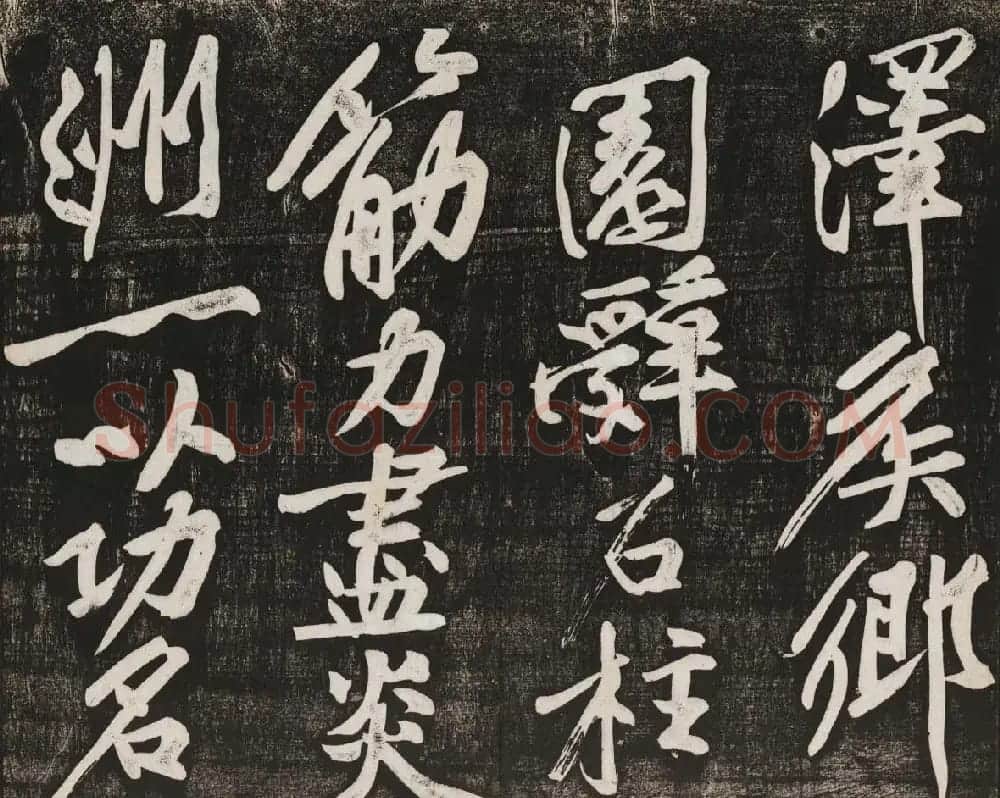 澤侯鄉
園辭石柱
筋力盡炎
洲一以功名
Shufaziliao.COM